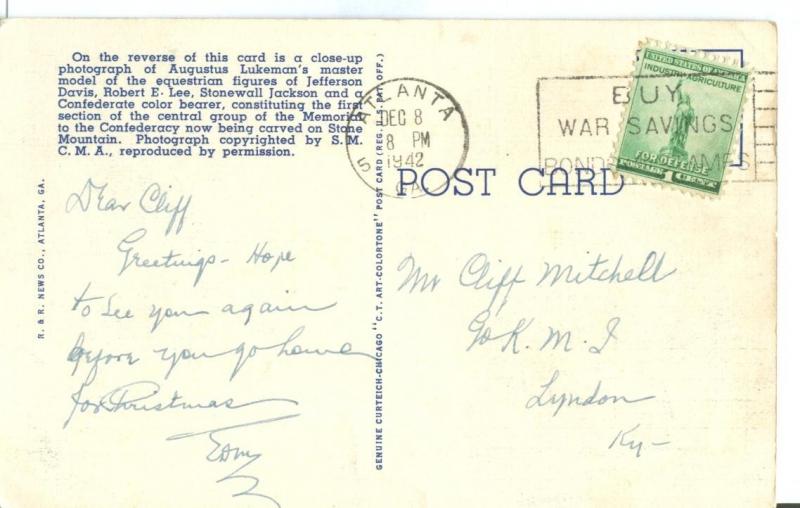 On the reverse of this card is a close-up
photograph of Augustus Lukeman's master
model of the equestrian figures of Jefferson
Davis, Robert E. Lee, Stonewall Jackson and a
Confederate color bearer, constituting the first
section of the central group of the Memorial
to the Confederacy now being carved on Stone
Mountain. Photograph copyrighted by S. M.
C. M. A., reproduced by permission.
R. & R. NEWS CO., ATLANTA, GA.
Dear Cliff
Greetings - Hope
to see you again
before you go home
for Christmas
GENUINE CURTEICH-CHICAGO "C. T. ART-COLORTONE" POST CARD (REG. U.S. PAT. OFF.)
ATLANTA
5
DEC 8
8 PM
1942
GA
BUY
WAR SAVINGS
BONDS AMPS
UNITED STATES OF AMERICA
INDUSTRY AGRICULTURE
FOR DEFENSE
POSTAGE 1 CENT
POST CARD
Mr Cliff Mitchell
℅ K. M. I
Lyndon
Ky-